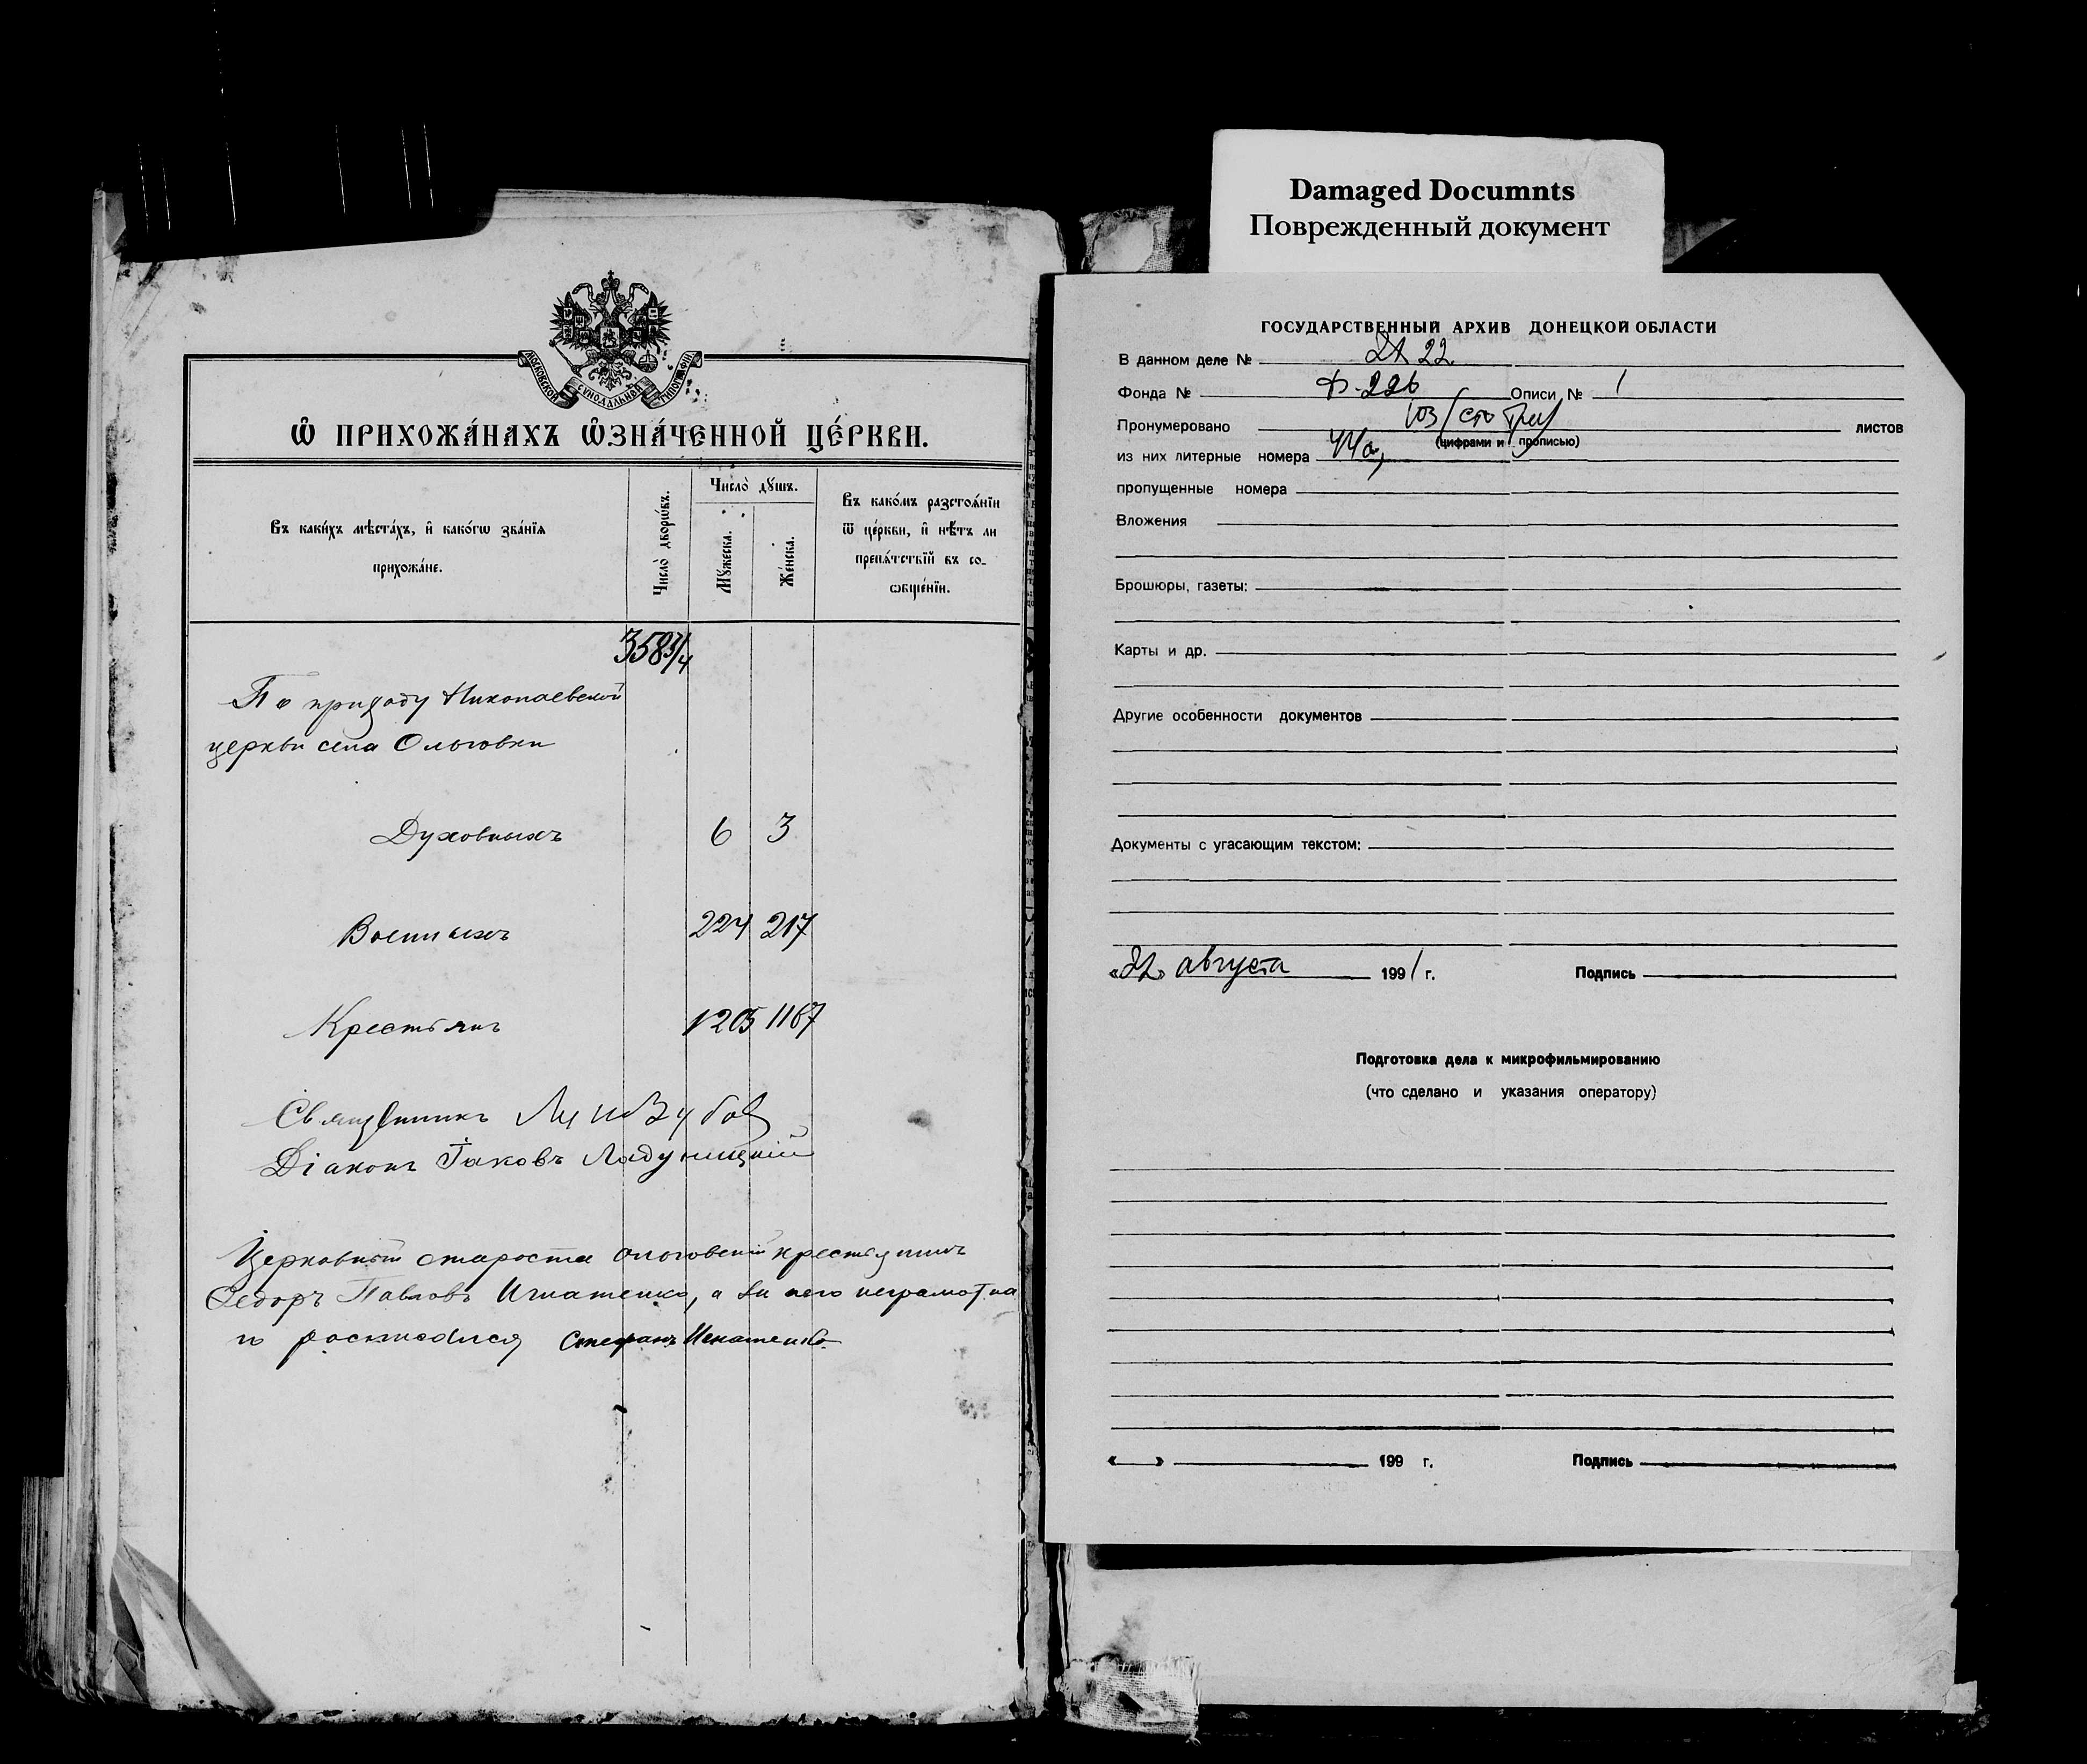 Damaged Documnts
Поврежденный документ
МОСКОВСКОЙ СѴНОДАЛЬНОЙ ТИПОГРАФІИ
Ѿ ПРИХОЖА́НАХЪ Ѡ҆ЗНА́ЧЕННОЙ ЦЕ́РКВИ.
Въ каки́хъ мѣста́хъ, и҆ како́гѡ зва́нїѧ
прихожа́не.
Число̀ дворѡ́въ.
Число̀ дꙋ́шъ.
Мꙋ́жеска.
Же́нска.
Въ како́мъ разстоѧ́нїи
ѿ це́ркви, и҆ нѣ́тъ ли
препѧ́тствїй въ со-
ѡбще́нїи.
358 3/4
По приходу Николаевской
церкви села Ольговки
Духовныхъ 6 3
Военныхъ 224 217
Крестьянъ 1205 1167
Священникъ
Діаконъ Іаковъ
Церковный староста Ольговскій крестьянинъ
Ѳедоръ Павловъ Игнатенко, а за него неграмотна
го росписался Стефанъ Игнатенко
ГОСУДАРСТВЕННЫЙ АРХИВ ДОНЕЦКОЙ ОБЛАСТИ
В данном деле № 22
Фонда № Ф-226 Описи № 1
Пронумеровано 103 /сто три/ листов
(цифрами и прописью)
из них литерные номера 44а,
пропущенные номера
Вложения
Брошюры, газеты:
Карты и др.
Другие особенности документов
Документы с угасающим текстом:
« » августа 1991 г. Подпись
Подготовка дела к микрофильмированию
(что сделано и указания оператору)
« » 199 г. Подпись